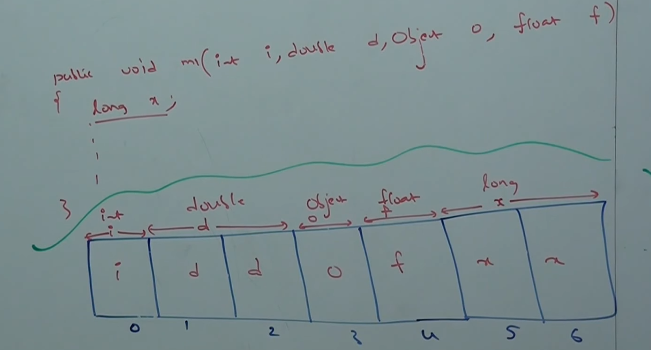 public void m1(int i, double d, Object o, float f)
{ long x;
}
int double Object float long
i d o f x
i d d o f x x
0 1 2 3 4 5 6